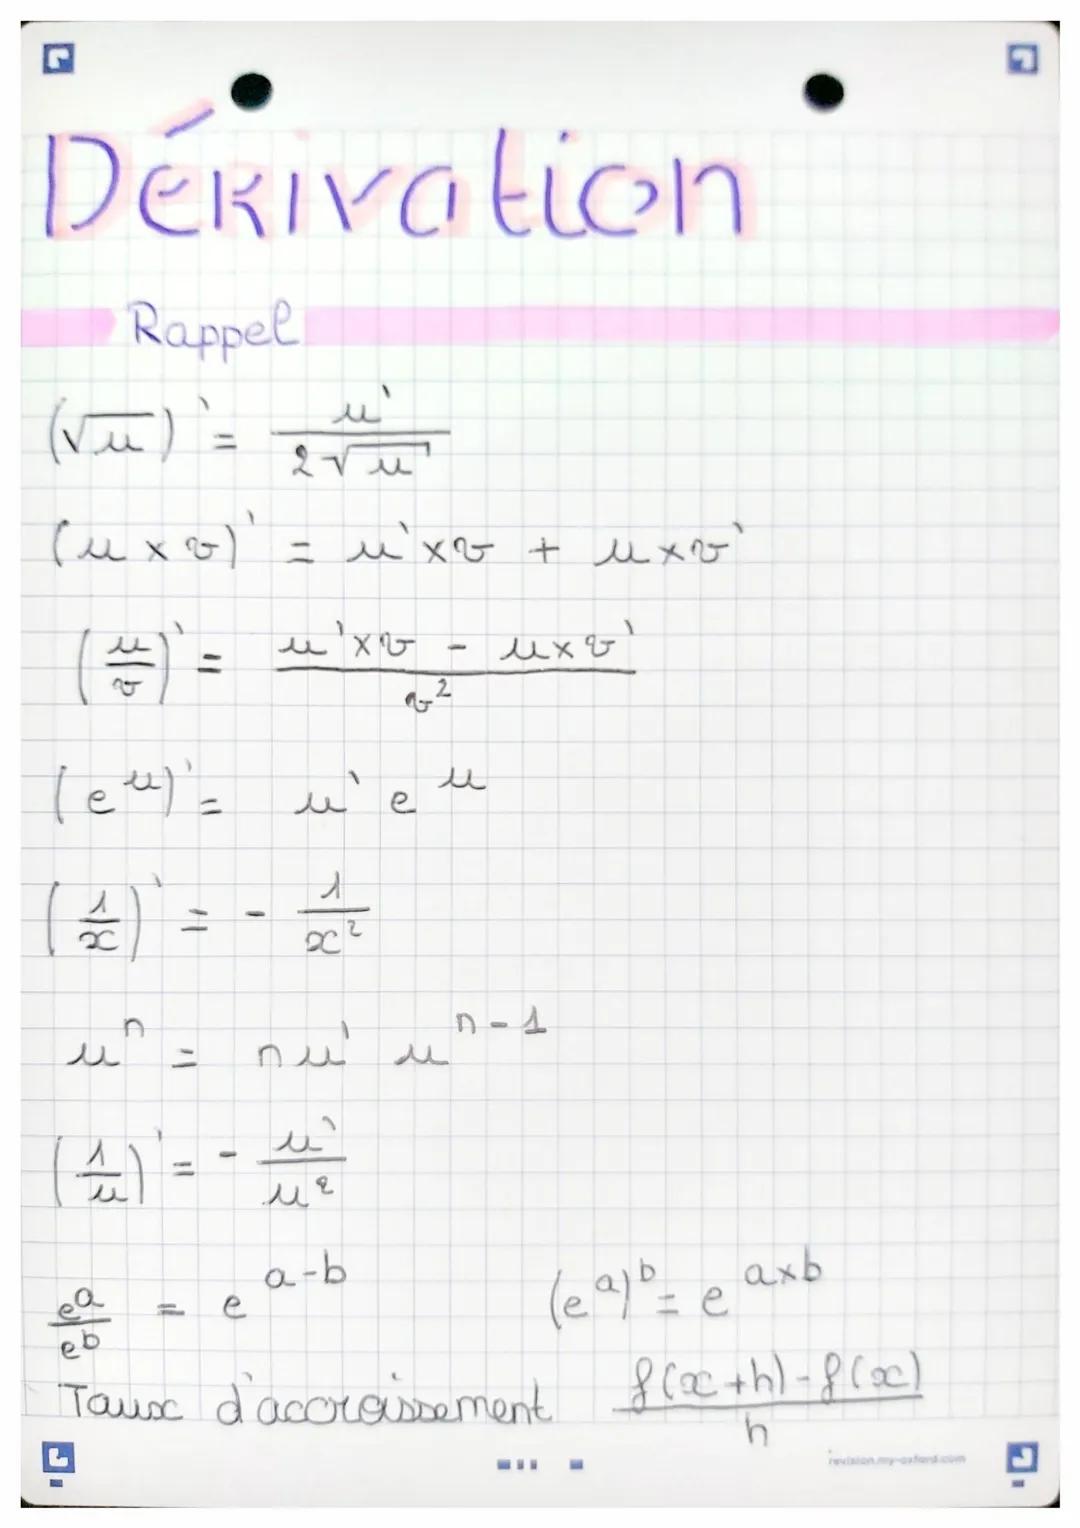 Dérivation
Rappel
(√u)' = u' / 2√u
(u × v)' = u' × v + u × v'
(u/v)' = (u' × v - u × v') / v²
(e^u)' = u' e^u
(1/x)' = - 1/x²
u^n = n u' u^(n-1)
(1/u)' = - u'/u²
e^a/e^b = e^(a-b) (e^a)^b = e^(a×b)
Taux d'accroissement (f(x+h) - f(x)) / h
revision.my-oxford.com